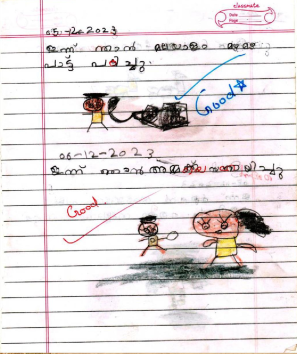 classmate
Date
Page
05-12-2023
ഇന്ന് ഞാൻ മലയാളം
പാട്ട് പഠിച്ചു.
Good
06-12-2023
ഇന്ന് ഞാൻ അമ്മയെ സഹായിച്ചു
Good